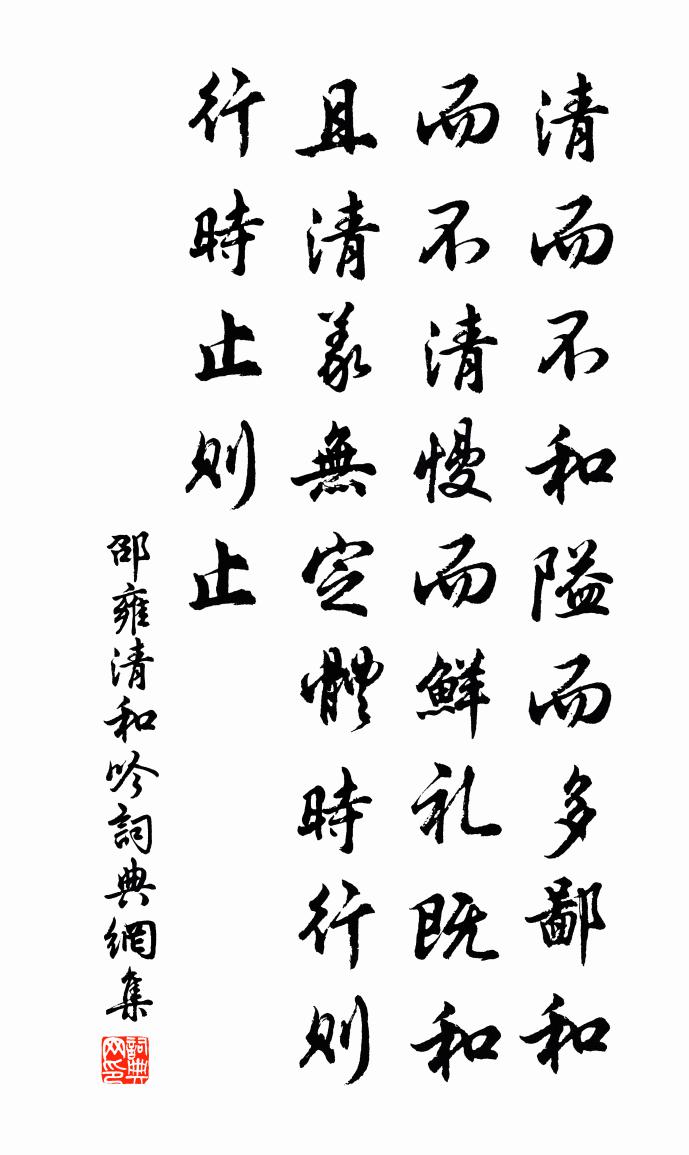 清而不和隘而多鄙和
而不清慢而鮮礼既和
且清義無定體時行則
行時止則止
邵雍清和吟詞典網集
詞典网印